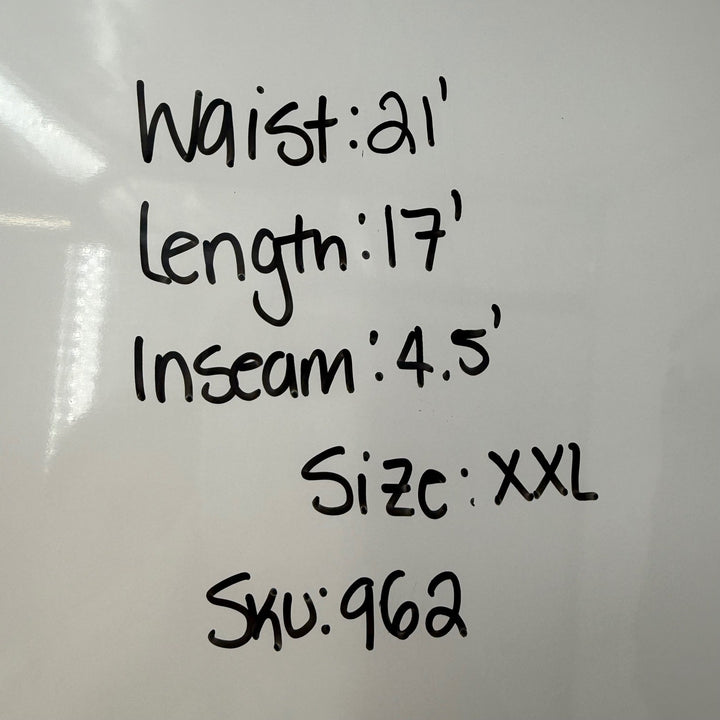 Waist: 21'
Length: 17'
Inseam: 4.5'
Size: XXL
Sku: 962